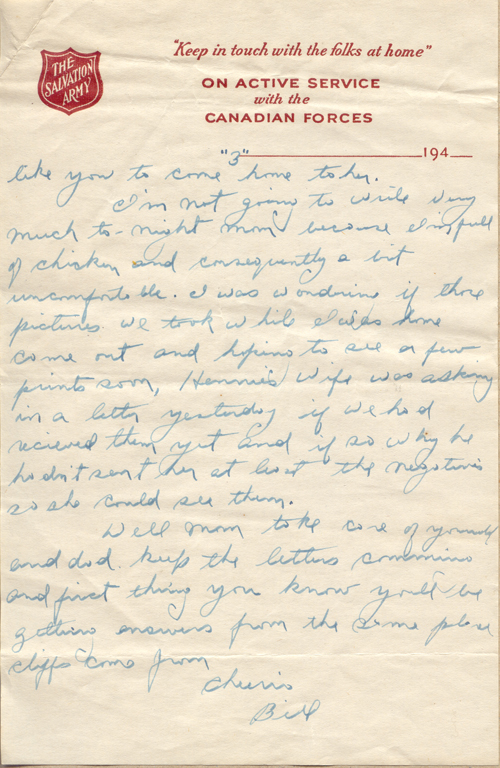 "Keep in touch with the folks at home"
THE
SALVATION
ARMY
ON ACTIVE SERVICE
with the
CANADIAN FORCES
"3" 194
like you to come home to her.
I'm not going to write very
much to-night mom because I'm full
of chicken and consequently a bit
uncomfortable. I was wondering if those
pictures we took while I was home
come out and hoping to see a few
prints soon, Hennie's wife was asking
in a letter yesterday if we had
recieved them yet and if so why he
hadn't sent her at least the negatives
so she could see them.
Well mom take care of yourself
and dad. keep the letters comming
and first thing you know you'll be
getting answers from the same place
cliffs come from
cheerio
Bill